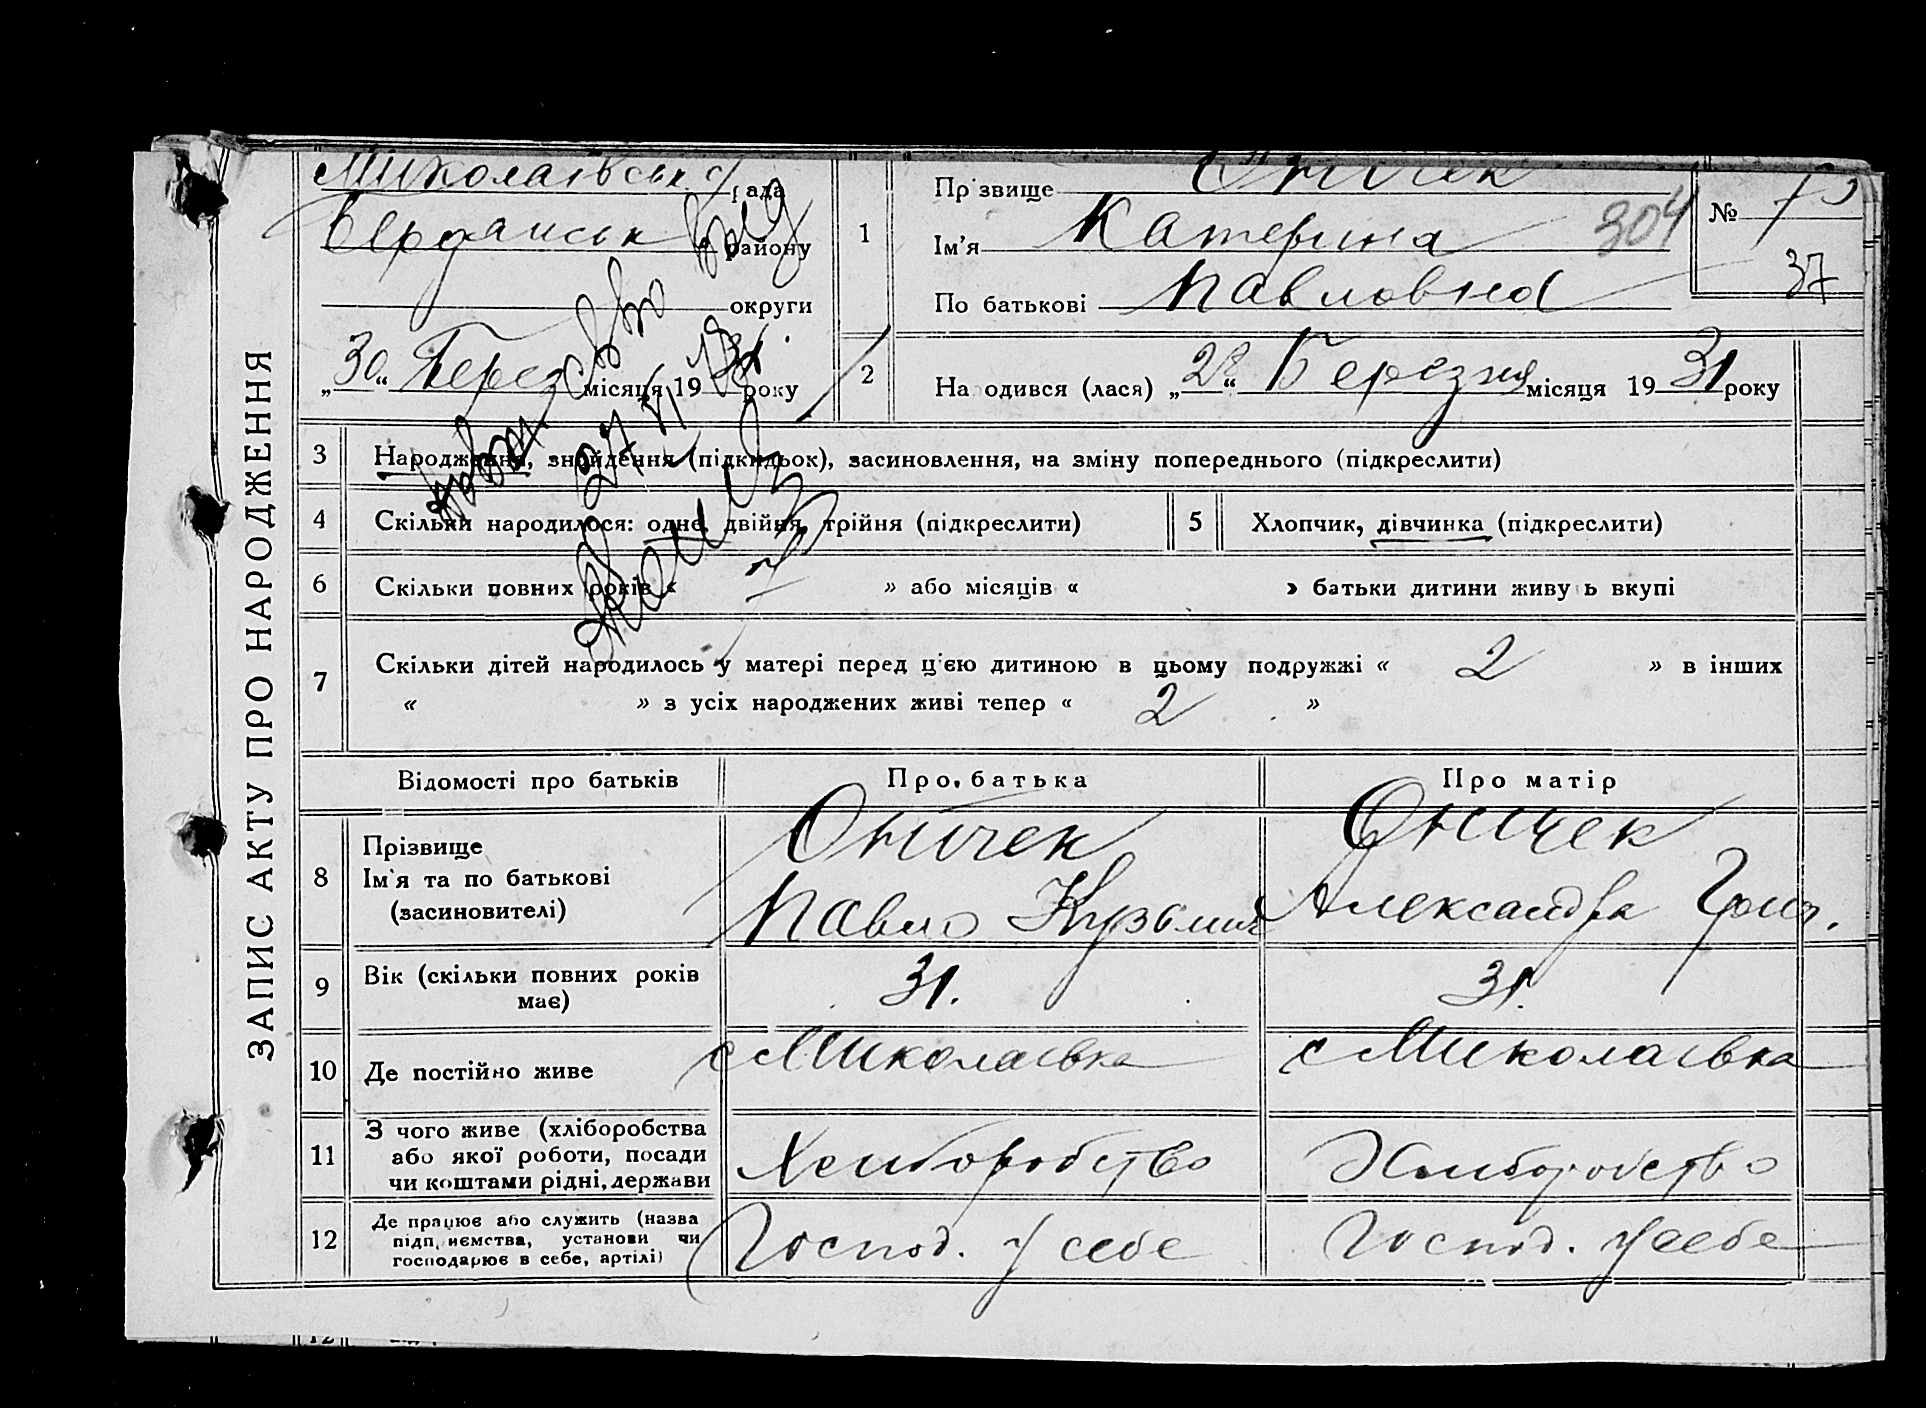 ЗАПИС АКТУ ПРО НАРОДЖЕННЯ
Миколаївська рада
Бердянськ району
округи
„30“ Берез місяця 1931 року
1
Прізвище Онičек
Ім'я Катерина 304
По батькові Павловна
№ 73
37
2
Народився (лася) „28“ Березня місяця 1931 року
3 Народження, знайдення (підкидьок), засиновлення, на зміну попереднього (підкреслити)
4 Скільки народилося: одне, двійня, трійня (підкреслити)
5 Хлопчик, дівчинка (підкреслити)
6 Скільки повних років « » або місяців « » батьки дитини живуть вкупі
7 Скільки дітей народилось у матері перед цією дитиною в цьому подружжі « 2 » в інших
« » з усіх народжених живі тепер « 2 »
Відомості про батьків Про батька Про матір
8 Прізвище Ім'я та по батькові (засиновителі)
Оничек Оничек
Павло Кузьмич Александра Григ.
9 Вік (скільки повних років має) 31. 31.
10 Де постійно живе с Миколаївка с Миколаївка
11 З чого живе (хліборобства або якої роботи, посади чи коштами рідні, держави Хлиборобство Хлиборобство
12 Де працює або служить (назва підприємства, установи чи господарює в себе, артілі) Господ. у себе Господ. у себе